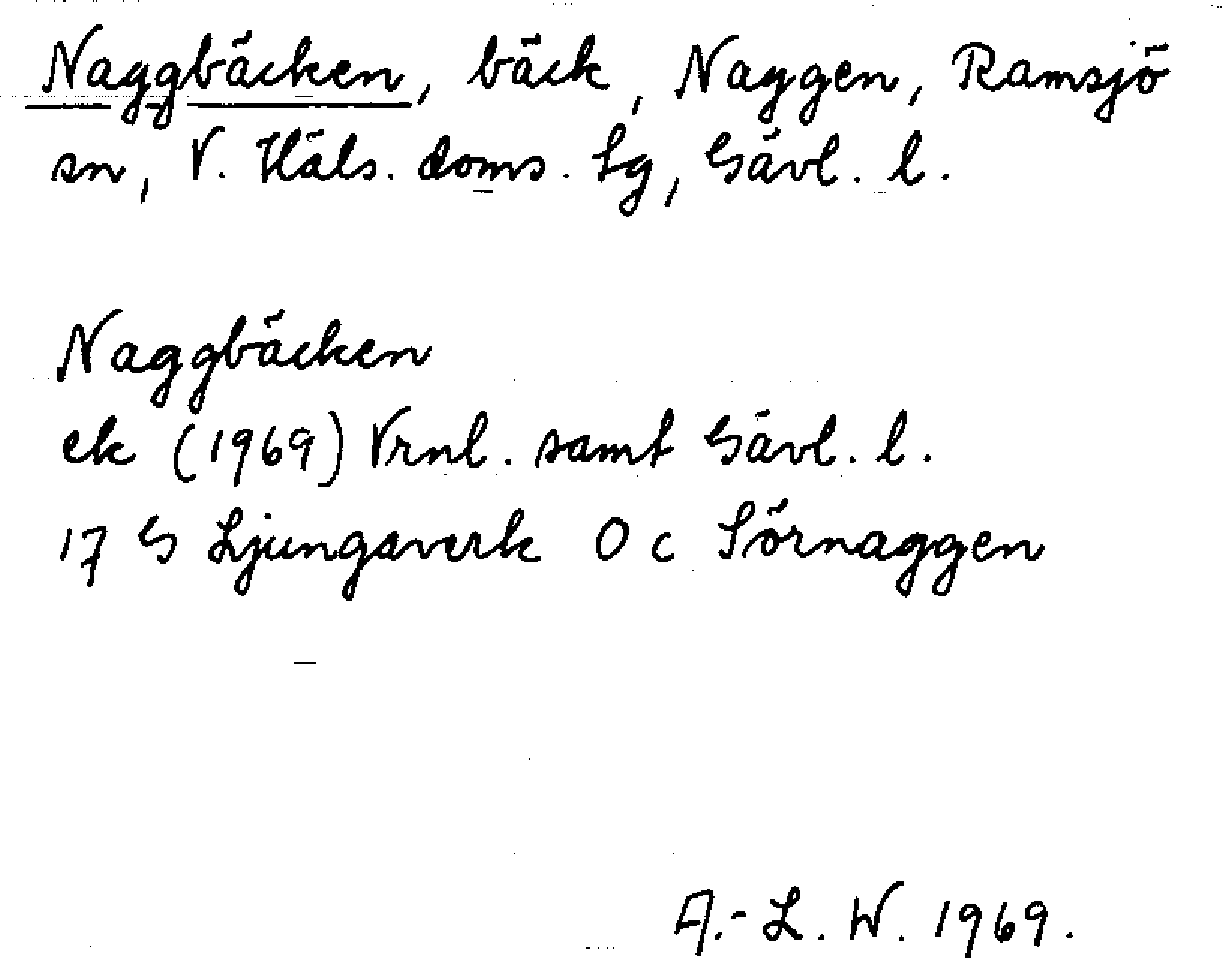 Naggbäcken, bäck, Naggen, Ramsjö
sn, V. Häls. doms. lg, Gävl. l.
Naggbäcken
ek (1969) Vrnl. samt Gävl. l.
17 G Ljungaverk 0 c Sörnaggen
A.-L. W. 1969.